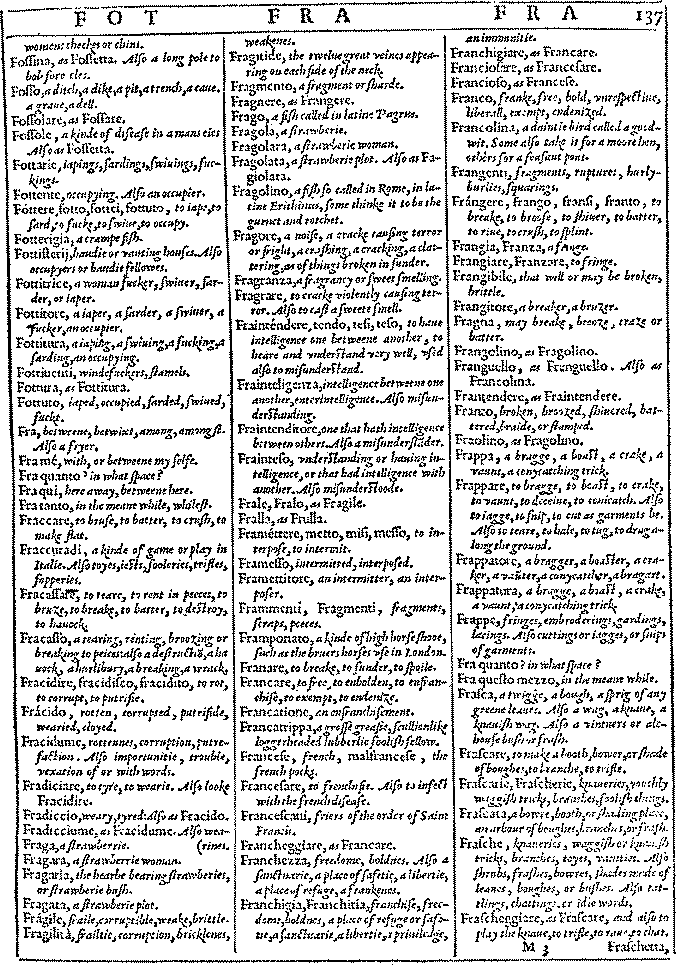 FOT FRA FRA 137
women: cheekes or chins.
Fossina, as Fossetta. Also a long pole to
Fosso, a ditch, a dike, a pit, a trench, a caue.
a graue, a dell.
Fossolare, as Fossare.
Fossole, a kinde of disease in a mans eies
Also as Fossetta.
Fottarie, iapings, sardings, swiuings, fuc-
kings.
Fottente, occupying. Also an occupier.
Fóttere, fotto, fottei, fottuto, to iape, to
sard, to fucke, to swiue, to occupy.
Fotterigia, a crampe fish.
Fottisterij, baudie or vauting houses. Also
occupyers or baudie fellowes.
Fottitrice, a woman fucker, swiuer, sar-
der, or iaper.
Fottitore, a iaper, a sarder, a swiuer, a
fucker, an occupier.
Fottitura, a iaping, a swiuing, a fucking, a
sarding, an occupying.
Fottiuenti, windefuckers, stamels.
Fottura, as Fottitura.
Fottuto, iaped, occupied, sarded, swiued,
fuckt.
Fra, betweene, betwixt, among, amongst.
Also a fryer.
Fra mé, with, or betweene my selfe.
Fra quanto? in what space?
Fra qui, here away, betweene here.
Fra tanto, in the meane while, whilest.
Fraccare, to bruse, to batter, to crush, to
make flat.
Fraccuradi, a kinde of game or play in
Italie. Also toyes, iests, fooleries, trifles,
fopperies.
Fracassare, to teare, to rent in peeces, to
bruze, to breake, to batter, to destroy,
to hauock
Fracasso, a tearing, renting, broozing or
breaking to peices: also a destructiō, a ha
uock, a hurlibury, a breaking, a wrack.
Fracidire, fracidisco, fracidito, to rot,
to corrupt, to putrifie.
Frácido, rotten, corrupted, putrifide,
wearied, cloyed.
Fracidume, rottennes, corruption, putre-
faction. Also importunitie, trouble,
vexation of or with words.
Fradiciare, to tyre, to wearie. Also looke
Fracidire.
Fradiccio, weary, tyred. Also as Fracido.
Fradicciume, as Fracidume. Also wea-
Fraga, a strawberie. (rines.
Fragara, a strawberrie woman.
Fragaria, the hearbe bearing strawberies,
or strawberie bush.
Fragata, a strawberie plot.
Frágile, fraile, corruptible, weake, brittle.
Fragilità, frailtie, corruption, bricklenes,
weakenes.
Fragitide, the twelue great veines appea-
ring on each side of the neck.
Fragmento, a fragment or sharde.
Fragnere, as Frangere.
Frago, a fish called in latine Pagrus.
Fragola, a strawberie.
Fragolara, a strawberie woman.
Fragolata, a strawberie plot. Also as Fa-
giolata.
Fragolino, a fish so called in Rome, in la-
tine Erithinus, some thinke it to be the
gurnet and rotchet.
Fragore, a noise, a cracke causing terror
or fright, a crashing, a cracking, a clat-
tering, as of things broken in sunder.
Fragranza, a fragrancy or sweet smelling.
Fragrare, to cracke violently causing ter-
ror. Also to cast a sweete smell.
Fraintèndere, tendo, tesi, teso, to haue
intelligence one betweene another, to
heare and vnderstand very well, vsed
also to misunderstand.
Fraintelligenza, intelligence betweene one
another, enterintelligence. Also misun-
derstanding.
Fraintenditore, one that hath intelligence
between others. Also a misunderstāder.
Frainteso, vnderstanding or hauing in-
telligence, or that had intelligence with
another. Also misunderstoode.
Frale, Fralo, as Fragile.
Fralla, as Frulla.
Framéttere, metto, misi, messo, to in-
terpose, to intermit.
Framesso, intermitted, interposed.
Framettitore, an intermitter, an inter-
poser.
Frammenti, Fragmenti, fragments,
scraps, peeces.
Framponato, a kinde of high horse shooe,
such as the bruers horses vse in London.
Franare, to breake, to sunder, to spoile.
Francare, to free, to enbolden, to enfran-
chise, to exempt, to endenize.
Francatione, an enfranchisement.
Francatrippa, a grosse greasie, scullianlike
loggerheaded lubberlie foolish fellow.
Francese, french, malfrancese, the
french pocks.
Francesare, to frenchifie. Also to infect
with the french disease.
Francescani, friers of the order of Saint
Francis.
Francheggiare, as Francare.
Franchezza, freedome, boldnes. Also a
sanctuarie, a place of safetie, a libertie,
a place of refuge, a franknes.
Franchigia, Franchitia, franchise, free-
dome, boldnes, a place of refuge or safe-
tie, a sanctuarie, a libertie, a priuiledge,
an immunitie.
Franchigiare, as Francare.
Franciosare, as Francesare.
Francioso, as Francese.
Franco, franke, free, bold, vnrespectiue,
liberall, exempt, endenized.
Francolina, a daintie bird called a god-
wit. Some also take it for a moore hen,
others for a feasant pout.
Frangenti, fragments, ruptures, hurly-
burlies, squarings.
Frángere, frango, fransi, franto, to
breake, to broose, to shiuer, to batter,
to riue, to crush, to splint.
Frangia, Franza, a fringe.
Frangiare, Franzare, to fringe.
Frangibile, that will or may be broken,
brittle.
Frangitore, a breaker, a bruzer.
Fragna, may breake, brooze, craze or
batter.
Frangolino, as Fragolino.
Franguello, as Frenguello. Also as
Francolina.
Frantendere, as Fraintendere.
Franto, broken, broozed, shiuered, bat-
tered, braide, or stamped.
Fraolino, as Fragolino.
Frappa, a bragge, a boast, a crake, a
vaunt, a conycatching trick.
Frappare, to bragge, to boast, to crake,
to vaunt, to deceiue, to conicatch. Also
to iagge, to snip, to cut as garments be.
Also to teare, to hale, to tug, to drug a-
long the ground.
Frappatore, a bragger, a boaster, a cra-
ker, a vanter, a conycatcher, a bragart.
Frappatura, a brague, a boast, a crake,
a vaunt, a conycatching trick
Frappe, fringes, embroderings, gardings,
lacings. Also cuttings or iagges, or snips
of garments.
Fra quanto? in what space?
Fra questo mezzo, in the meane while.
Frasca, a twigge, a bough, a sprig of any
greene leaues. Also a wag, a knaue, a
knauish wag. Also a vintners or ale-
house bush or frash.
Frascare, to make a booth, bower, or shade
of boughes, to branche, to trifle.
Frascarie, Frascherie, knaueries, youthly
waggish tricks, branches, foolish things.
Frascata, a bowre, booth, or shading place,
an arbour of boughes, branches, or frash.
Frasche, knaueries, waggish or knauish
tricks, branches, toyes, vanities. Also
shrubs, frashes, bowres, shades made of
leaues, boughes, or bushes. Also tat-
tlings, chattings, or idle words.
Frascheggiare, as Frascare, and also to
play the knaue, to trifle, to raue, to chat.
M 3 Fraschetta,